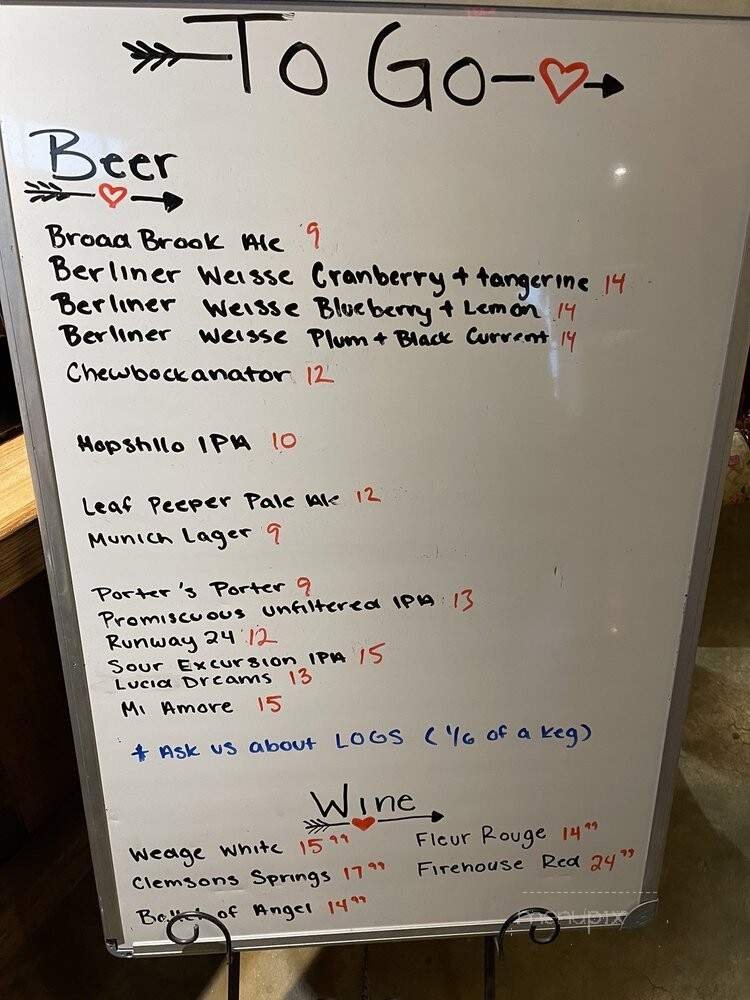 To Go
Beer
Broad Brook Ale 9
Berliner Weisse Cranberry + tangerine 14
Berliner Weisse Blueberry + Lemon 14
Berliner Weisse Plum + Black Current 14
Chewbockanator 12
Hopstillo IPA 10
Leaf Peeper Pale Ale 12
Munich Lager 9
Porter's Porter 9
Promiscuous unfiltered IPA 13
Runway 24 12
Sour Excursion IPA 15
Lucid Dreams 13
Mi Amore 15
* Ask us about LOGS (1/6 of a keg)
Wine
Wedge White 15.99 Fleur Rouge 14.99
Clemsons Springs 17.99 Firehouse Red 24.99
of Angel 14.99
menupix